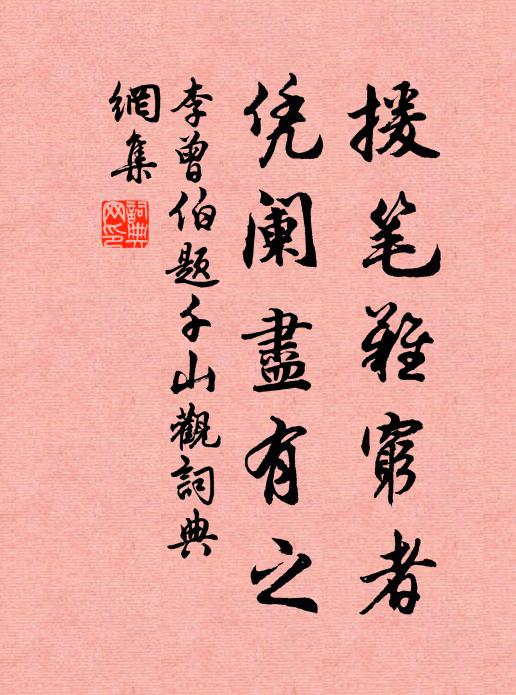 援笔難窮者
凭阑盡有之
李曾伯题千山觀詞典
網集
詞典
网印